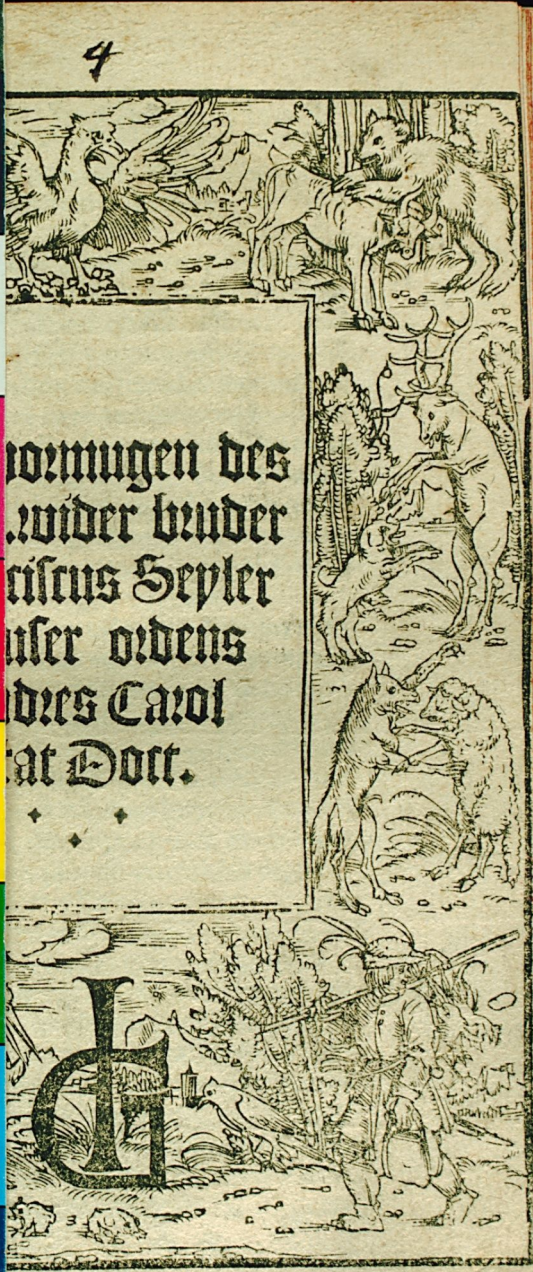 4
vormugen des
.wider bruder
ciscus Seyler
user ordens
dres Carol
tat Doct.
IG